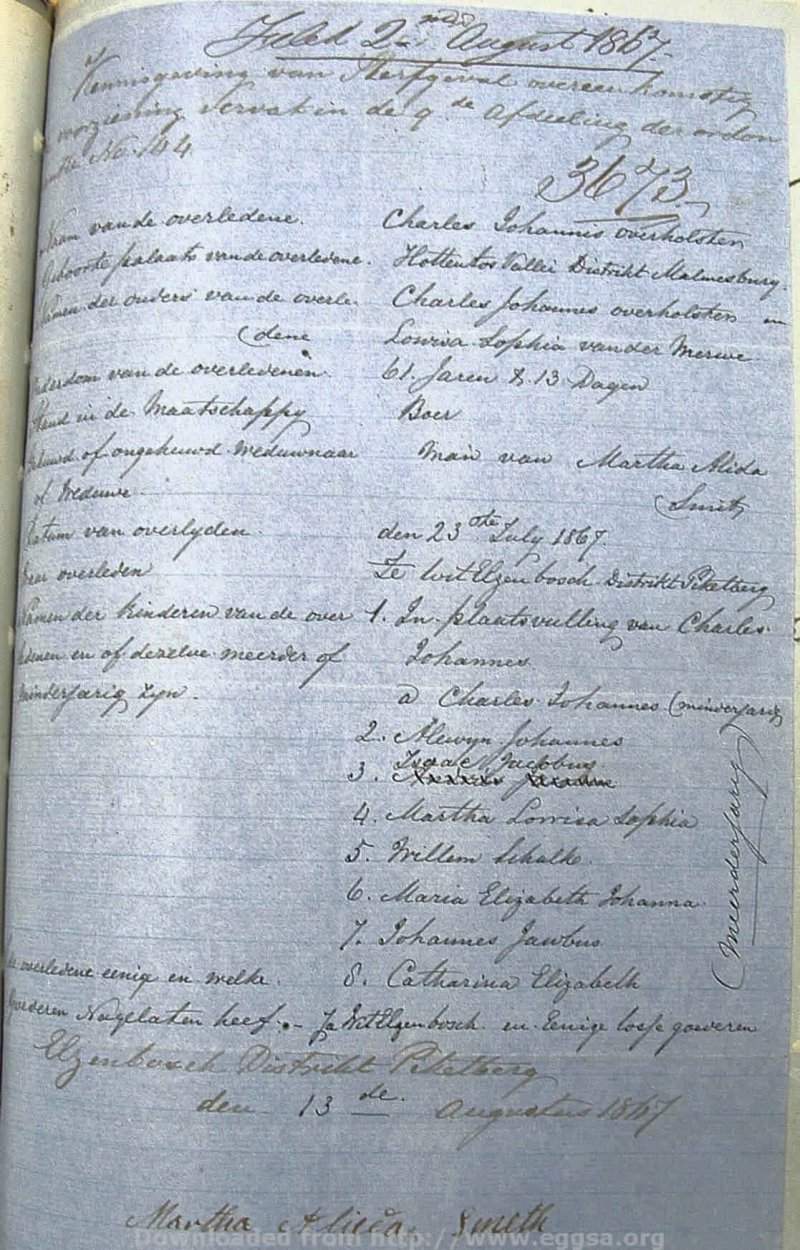 Filed 2nd August 1867.
Kennisgeving van Sterfgeval overeenkomstig
voorziening Servat in de 9de Afdeeling der ordon
No. 104
3673
Naam van de overledene. Charles Johannis overholsten
Geboorte palaats van de overledene. Hottentos Vallei Distrikt Malmesburg.
Namen der ouders van de overle- Charles Johannes overholsten en
dene Lowisa Sophia vander Merwe
Ouderdom van de overledenen. 61 Jaren & 13 Dagen
Stand in de Maatschappy Boer
Gehuwd of ongehuwd Weduwnaar Man van Martha Alida
of Weduwe. Smit
Datum van overlyden. den 23ste July 1867.
Waar overleden Te Wit Elzen bosch Distrikt Piketberg
Namen der kinderen van de over 1. In plaatsvulling van Charles
ledenen en of dezelve meerder of Johannes
minderjarig zyn. a Charles Johannes (minderjarig
2. Alewyn Johannes
3. Isaac Jacobus
4. Martha Lowisa Sophia
5. Willem Schalk
6. Maria Elizabeth Johanna
7. Johannes Jacobus
(Meerderjarig)
de overledene eenige en welke. 8. Catharina Elizabeth
goederen Nagelaten heef. - Ja Wit Elzenbosch en Eenige losse goederen
Elzenbosch Distrikt Piketberg
den 13de Augustus 1867
Martha Alieda Smeth
Downloaded from http://www.eggsa.org